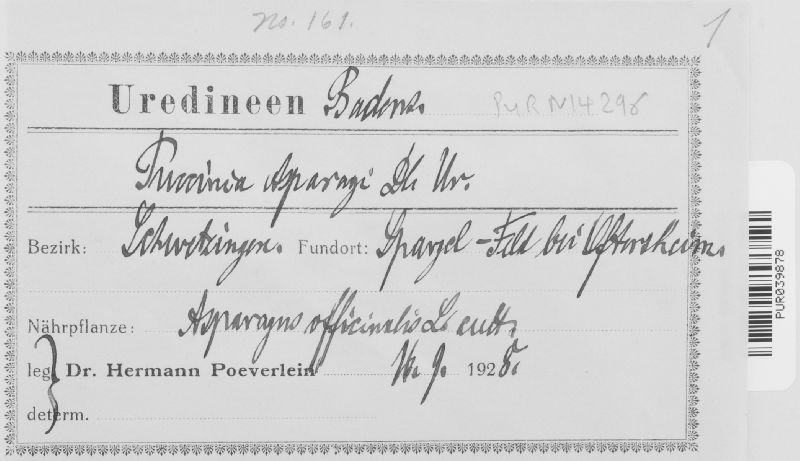 No. 161.
1
Uredineen Badens.
PUR N14298
Puccinia Asparagi DC. Ur.
Bezirk: Schwetzingen. Fundort: Spargel-Feld bei Oftersheim.
Nährpflanze: Asparagus officinalis L. cult.
leg. Dr. Hermann Poeverlein 16. 9. 1928.
determ.
PUR039878